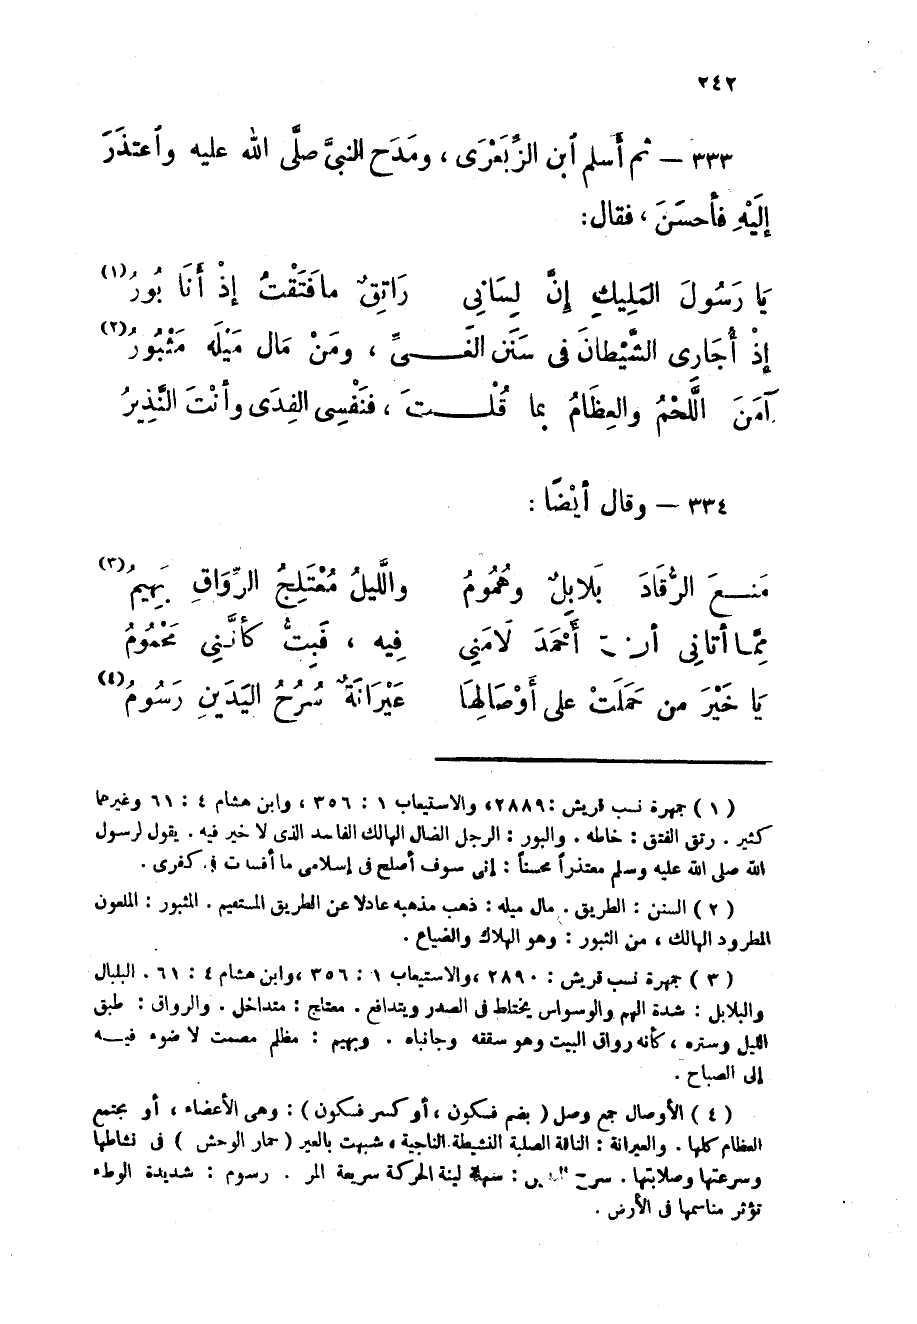 ٢٤٢
٣٣٣ — ثم أَسلم ٱبن الزِّبَعْرَى ، ومَدَح النبيَّ صلَّى الله عليه وٱعتذَرَ
إِلَيْهِ فأَحسَنَ ، فقال:
يَا رَسُولَ المَلِيكِ إِنَّ لِسَانِي رَاتِقٌ مافَتَقْتُ إِذْ أَنَا بُورُ(١)
إِذْ أُجَارِى الشَّيْطَانَ فى سَنَنِ الغَىِّ ، ومَنْ مَال مَيْلَه مَثْبُورُ(٢)
آمَنَ اللَّحْمُ والعِظَامُ بما قُلْتَ ، فنَفْسِى الفِدَى وأَنْتَ النَّذِيرُ
٣٣٤ — وقال أَيْضًا :
مَنَعَ الرُّقَادَ بَلَابِلٌ وهُمُومُ واللَّيلُ مُعْتَلِجُ الرِّوَاقِ بَهِيمُ(٣)
مِمَّا أتانِى أنَّ أَحْمَدَ لَامَنِى فِيه ، فَبِتُّ كأنَّنِي مَحْمُومُ
يَا خَيْرَ من حَمَلَتْ على أَوْصَالِهَا عَيْرَانَةٌ سُرُحُ اليَدَينِ رَسُومُ(٤)
( ١ ) جمهرة نسب قريش : ٢٨٨٩، والاستيعاب ١ : ٣٥٦ ، وابن هشام ٤ : ٦١ وغيرهما
كثير . رتق الفتق : خاطه . والبور : الرجل الضال الهالك الفاسد الذى لا خير فيه . يقول لرسول
الله صلى الله عليه وسلم معتذراً محسناً : إنى سوف أصلح فى إسلامى ما أفسدت فى كفرى .
( ٢ ) السنن : الطريق . مال ميله : ذهب مذهبه عادلا عن الطريق المستقيم . المثبور : الملعون
المطرود الهالك ، من الثبور : وهو الهلاك والضياع .
( ٣ ) جمهرة نسب قريش : ٢٨٩٠ ،والاستيعاب ١ : ٣٥٦ ،وابن هشام ٤ : ٦١ . البلبال
والبلابل : شدة الهم والوسواس يختلط فى الصدر ويتدافع . معتلج : متداخل . والرواق : طبق
الليل وستره ، كأنه رواق البيت وهو سقفه وجانباه . وبهيم : مظلم مصمت لا ضوء فيه
إلى الصباح .
( ٤ ) الأوصال جمع وصل ( بضم فسكون ، أو كسر فسكون ) : وهى الأعضاء ، أو مجتمع
العظام كلها . والعيرانة : الناقة الصلبة النشيطة الناجية ، شبهت بالعير ( حمار الوحش ) فى نشاطها
وسرعتها وصلابتها . سرح اليدين : سهلة لينة الحركة سريعة المر . رسوم : شديدة الوطء
تؤثر مناسمها فى الأرض .